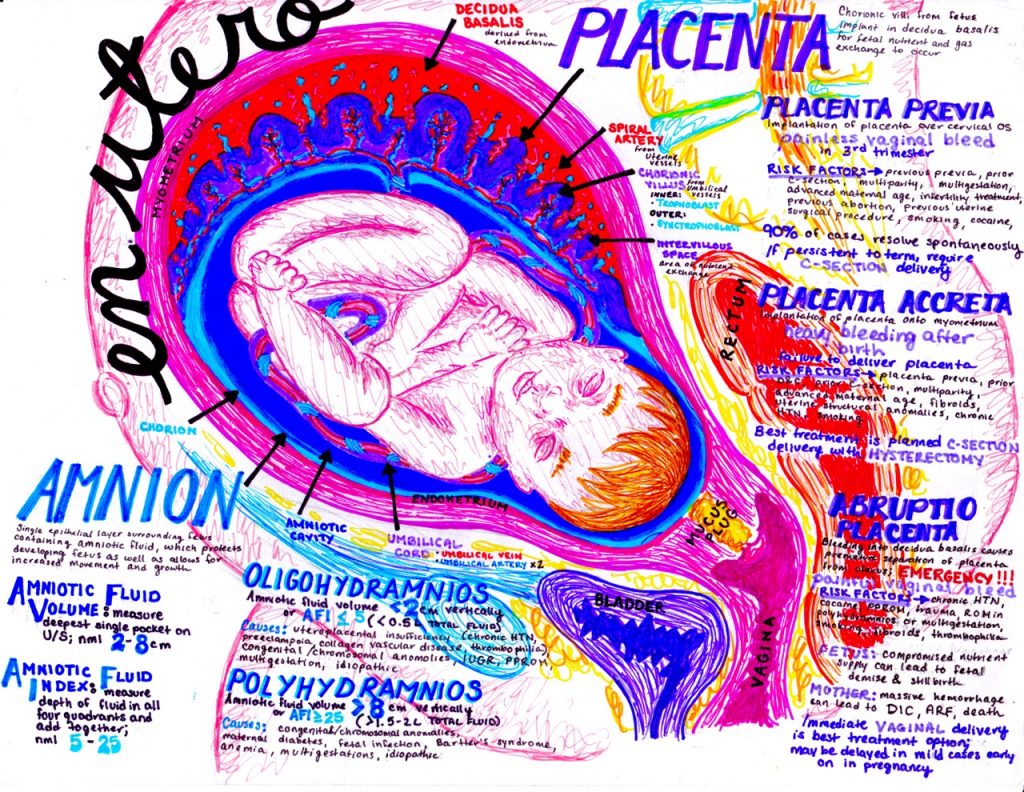 en utero
MYOMETRIUM
DECIDUA
BASALIS
derived from
endometrium
PLACENTA
Chorionic villi from fetus
implant in decidua basalis
for fetal nutrient and gas
exchange to occur
SPIRAL
ARTERY
from
uterine
vessels
CHORIONIC
VILLUS from
umbilical
vessels
INNER:
• TROPHOBLAST
OUTER:
• SYNCTROPHOBLAST
INTERVILLOUS
SPACE
area of nutrient
exchange
PLACENTA PREVIA
Implantation of placenta over cervical OS
painless vaginal bleed
in 3rd trimester
RISK FACTORS → previous previa, prior
C-section, multiparity, multigestation,
advanced maternal age, infertility treatment,
previous abortion, previous uterine
surgical procedure, smoking, cocaine,
90% of cases resolve spontaneously
If persistent to term, require
C-SECTION delivery
RECTUM
PLACENTA ACCRETA
Implantation of placenta onto myometrium
heavy bleeding after
birth
failure to deliver placenta
RISK FACTORS → placenta previa, prior
D&C, prior C-section, multiparity,
advanced maternal age, fibroids,
uterine structural anomalies, chronic
HTN, smoking
Best treatment is planned C-SECTION
delivery with HYSTERECTOMY
ABRUPTIO
PLACENTA
Bleeding into decidua basalis causes
premature separation of placenta
from uterus; EMERGENCY!!!
painful vaginal bleed
RISK FACTORS → chronic HTN,
cocaine, PPROM, trauma, ROM in
polyhydramnios or multigestation,
smoking, fibroids, thrombophilia
FETUS: compromised nutrient
supply can lead to fetal
demise & stillbirth
MOTHER: massive hemorrhage
can lead to DIC, ARF, death
Immediate VAGINAL delivery
is best treatment option;
may be delayed in mild cases early
on in pregnancy
CHORION
AMNION
Single epithelial layer surrounding fetus
containing amniotic fluid, which protects
developing fetus as well as allows for
increased movement and growth
AMNIOTIC FLUID
VOLUME: measure
deepest single pocket on
U/S; nml 2-8cm
AMNIOTIC FLUID
INDEX: measure
depth of fluid in all
four quadrants and
add together;
nml 5-25
AMNIOTIC
CAVITY
ENDOMETRIUM
UMBILICAL
CORD • UMBILICAL VEIN
• UMBILICAL ARTERY x2
MUCUS
PLUG
BLADDER
VAGINA
OLIGOHYDRAMNIOS
Amniotic fluid volume <2cm vertically
or AFI ≤ 5 (<0.5L TOTAL FLUID)
Causes: uteroplacental insufficiency (chronic HTN,
preeclampsia, collagen vascular disease, thrombophilia),
congenital/chromosomal anomalies, IUGR, PPROM,
multigestation, idiopathic
POLYHYDRAMNIOS
Amniotic fluid volume >8 cm vertically
or AFI ≥ 25 (>1.5-2L TOTAL FLUID)
Causes: congenital/chromosomal anomalies,
maternal diabetes, fetal infection, Bartter's syndrome,
anemia, multigestations, idiopathic